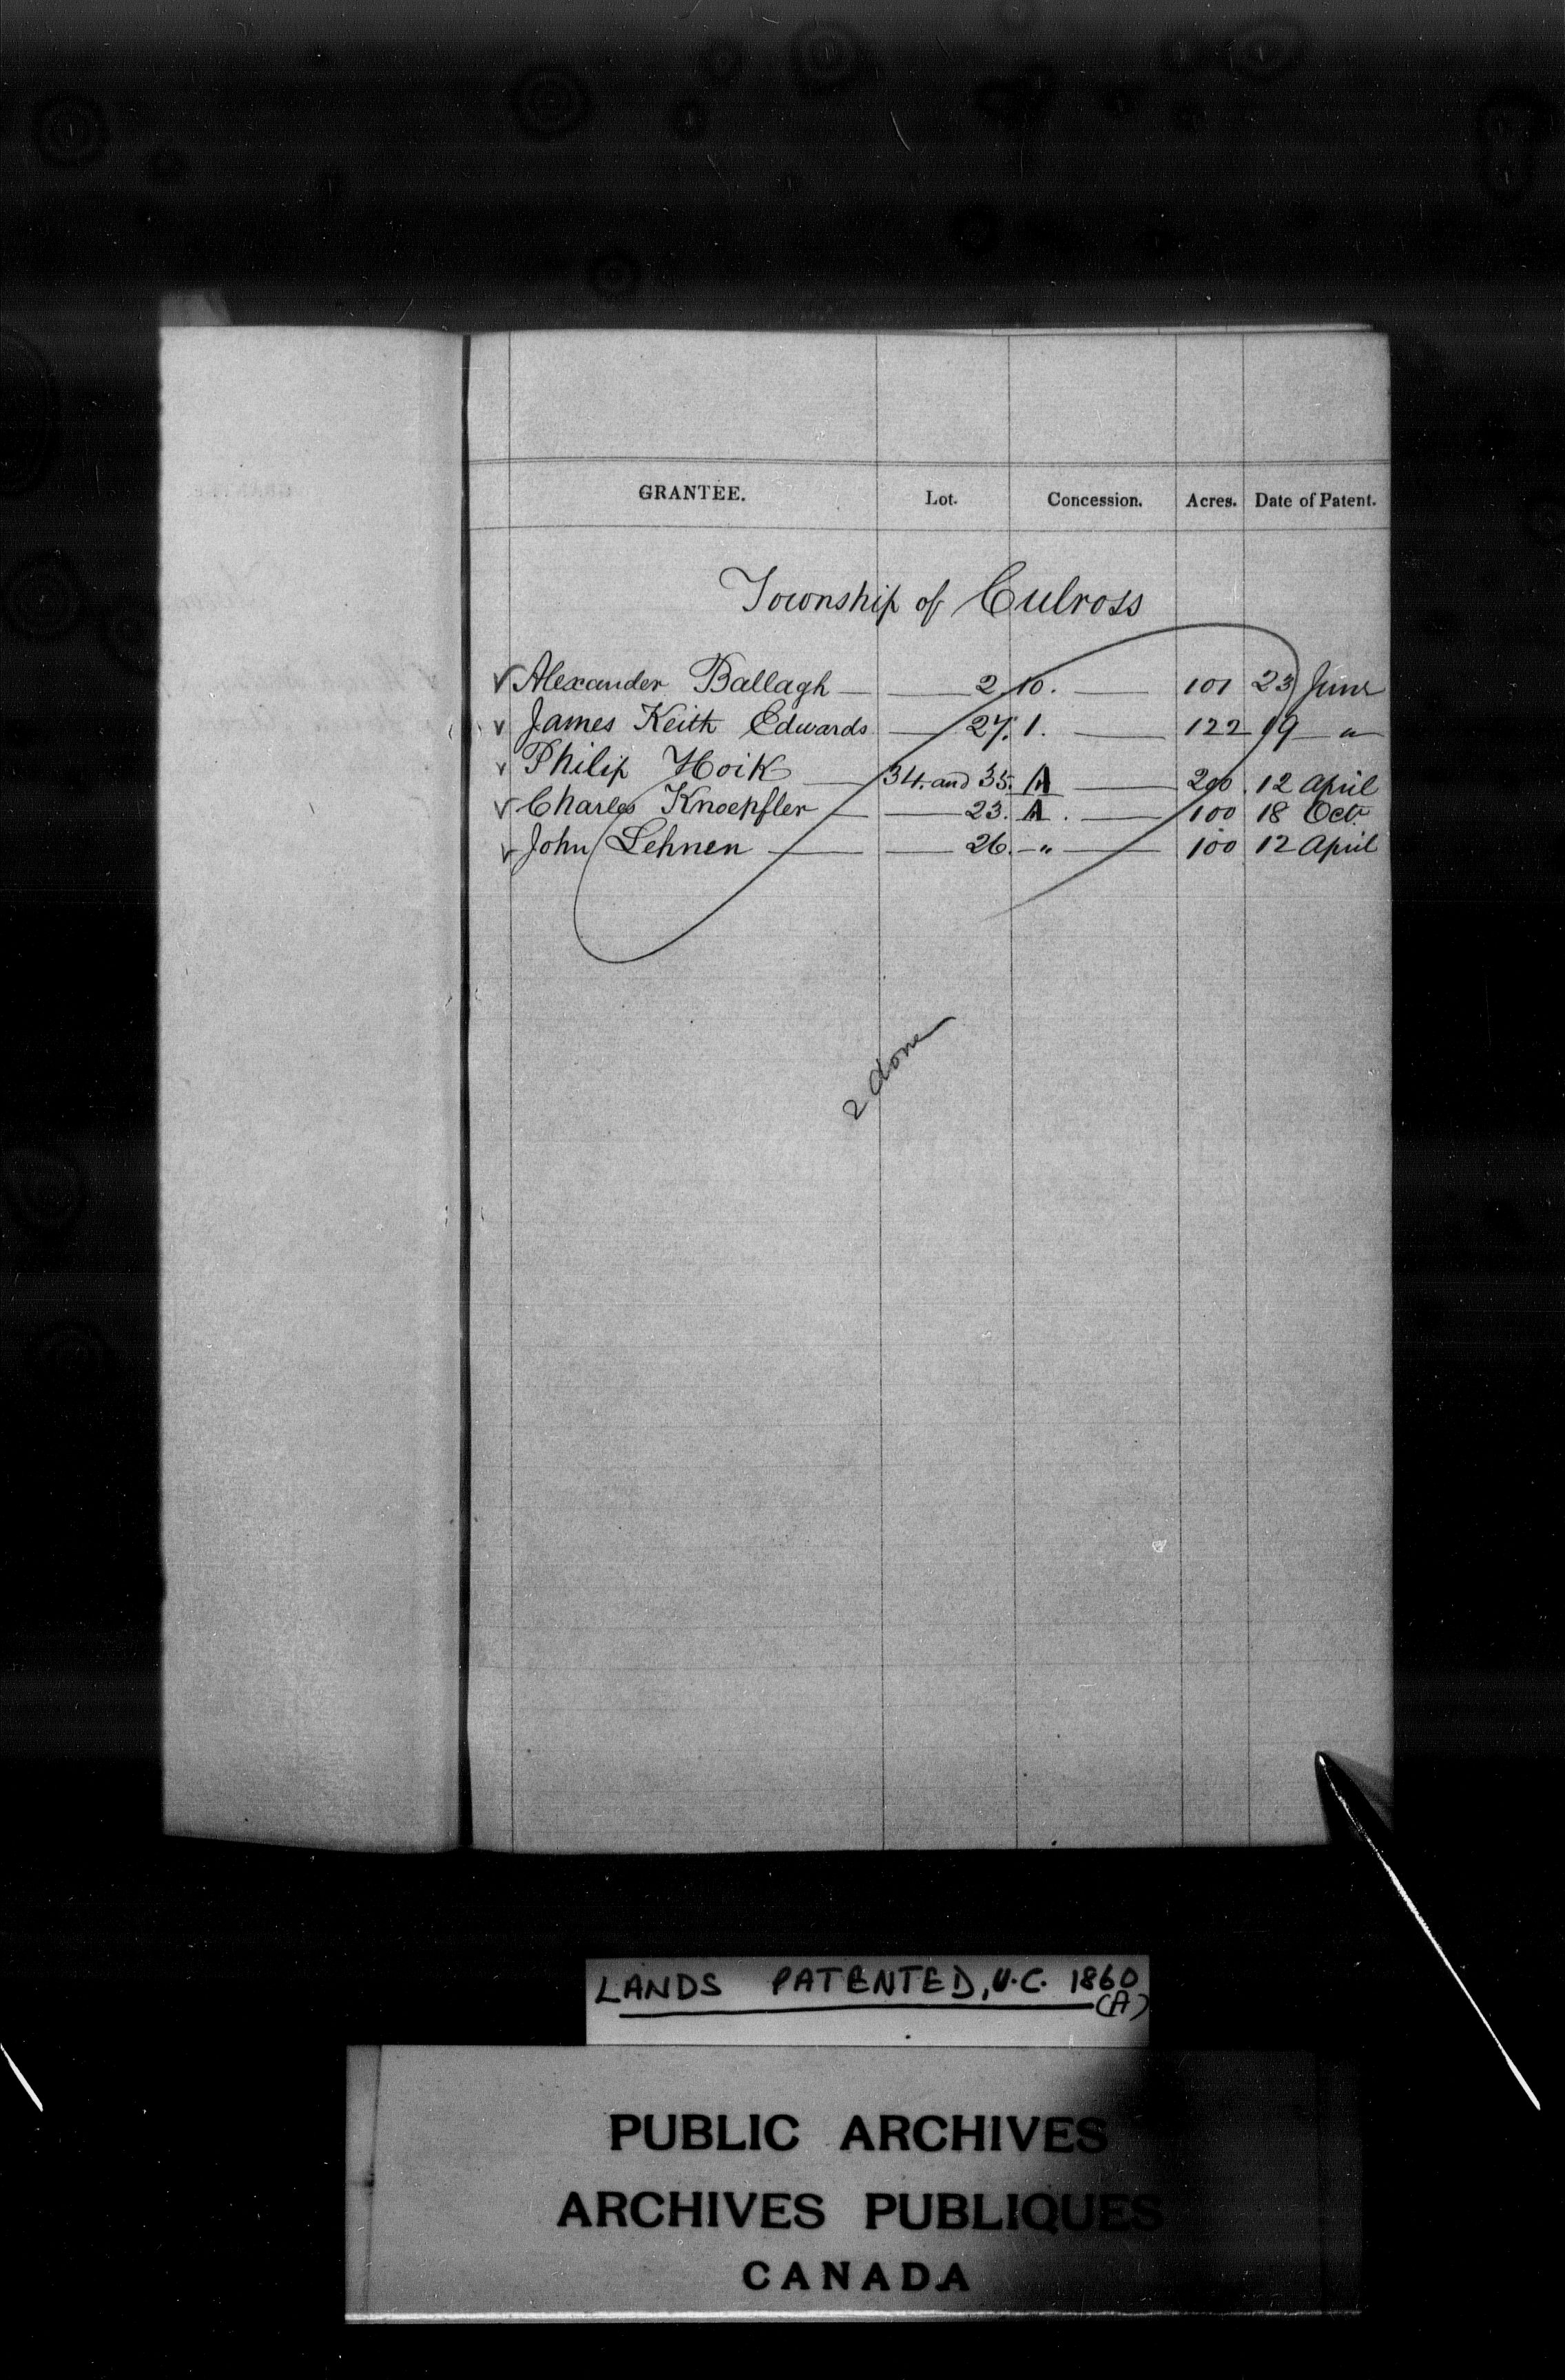 GRANTEE. Lot. Concession. Acres. Date of Patent.
Township of Culross
Alexander Ballagh 2 10. 101 23 June
James Keith Edwards 27. 1. 122 19 "
Philip Hoik 34. and 35. A 200. 12 April
Charles Knoepfler 23. A. 100 18 Octr
John Lehnen 26. " 100 12 April
2 done
LANDS PATENTED, U.C. 1860
(A)
PUBLIC ARCHIVES
ARCHIVES PUBLIQUES
CANADA